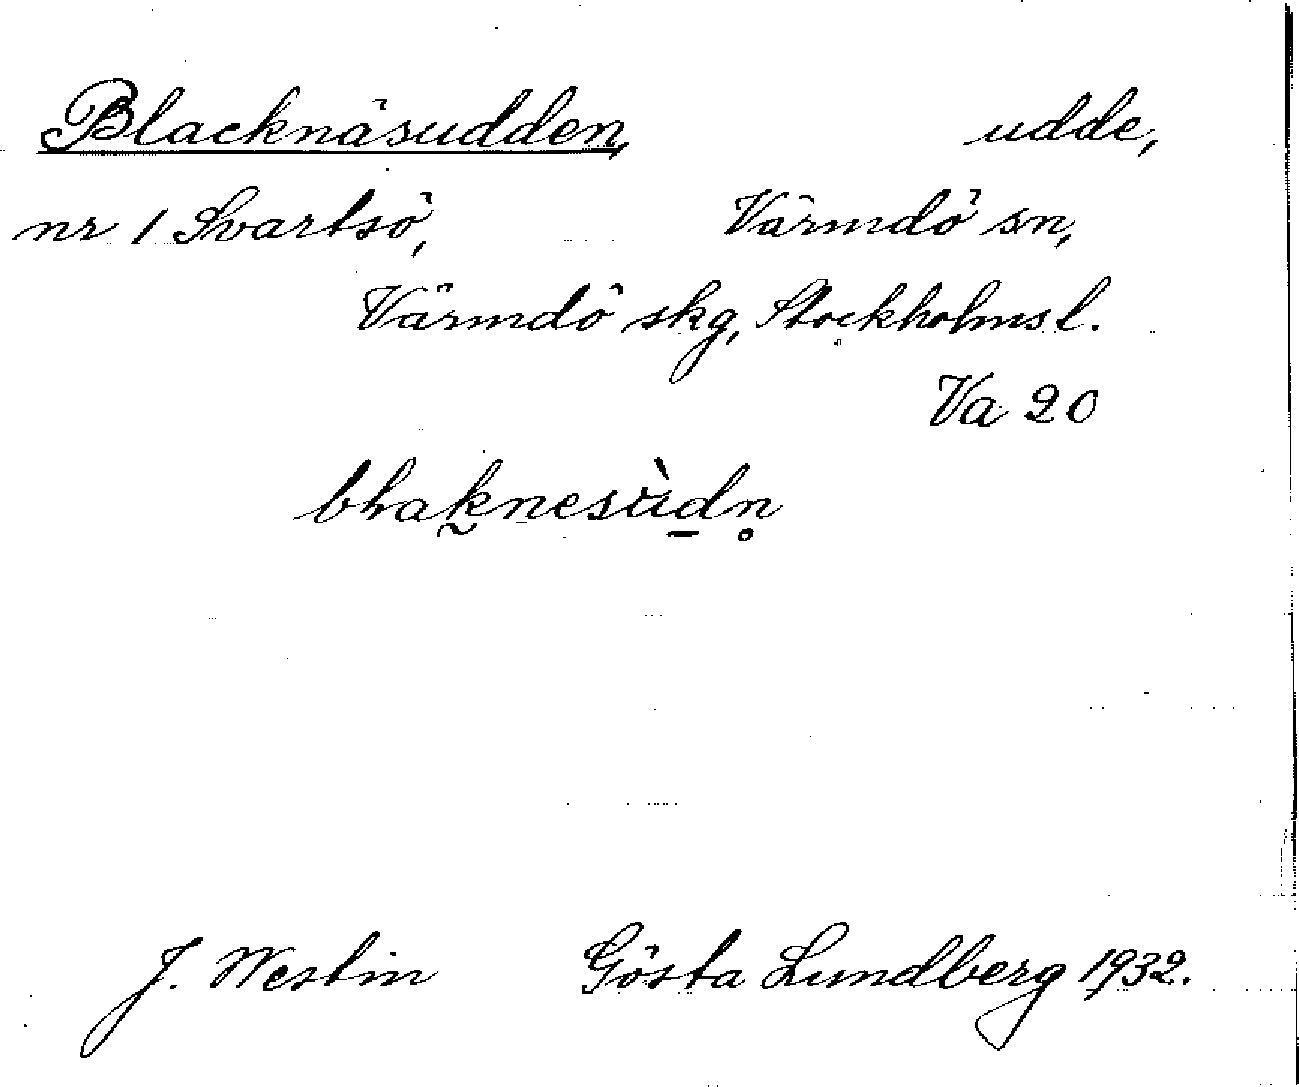 Blacknäsudden, udde,
nr 1 Svartsö, Värmdö sn,
Värmdö skg, Stockholms l.
Va 20
J. Westin Gösta Lundberg 1932.